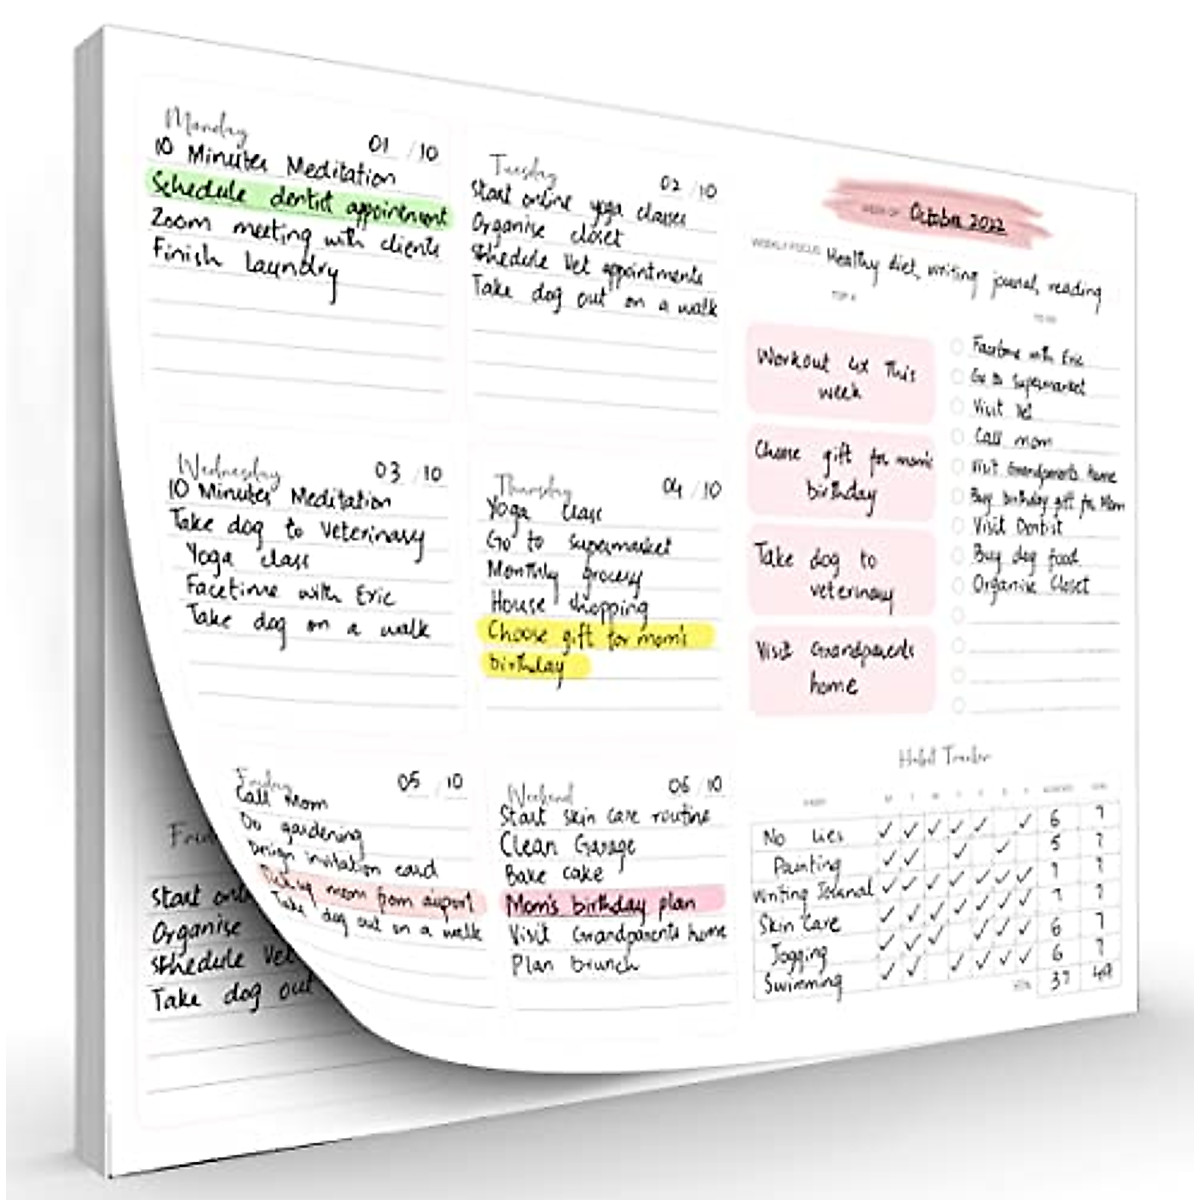 Monday 01 / 10
10 Minutes Meditation
Schedule dentist appointment
Zoom meeting with clients
Finish Laundry
Tuesday 02 / 10
Start online yoga classes
Organise closet
Schedule Vet appointments
Take dog out on a walk
WEEK OF October 2022
WEEKLY FOCUS Healthy diet, writing journal, reading
TOP 4
Workout 4x This
week
Choose gift for mom's
birthday
Take dog to
veterinary
Visit Grandparents
home
TO DO
Facetime with Eric
Go to Supermarket
Visit Vet
Call mom
Visit Grandparents home
Buy birthday gift for Mom
Visit Dentist
Buy dog food
Organise Closet
Wednesday 03 / 10
10 Minutes Meditation
Take dog to Veterinary
Yoga class
Facetime with Eric
Take dog on a walk
Thursday 04 / 10
Yoga class
Go to Supermarket
Monthly grocery
House shopping
Choose gift for mom's
birthday
Friday 05 / 10
Call Mom
Do gardening
Design invitation card
Pick up mom from airport
Take dog out on a walk
Weekend 06 / 10
Start skin care routine
Clean Garage
Bake cake
Mom's birthday plan
Visit Grandparents home
Plan brunch
Habit Tracker
M T W T F S S
No Lies ✓ ✓ ✓ ✓ ✓ ✓ 6 7
Painting ✓ ✓ ✓ ✓ 5 7
Writing Journal ✓ ✓ ✓ ✓ ✓ ✓ ✓ 7 7
Skin Care ✓ ✓ ✓ ✓ ✓ ✓ ✓ 7 7
Jogging ✓ ✓ ✓ ✓ ✓ ✓ 6 7
Swimming ✓ ✓ ✓ ✓ ✓ ✓ 6 7
37 49
Start
Organise
Schedule Vet
Take dog out